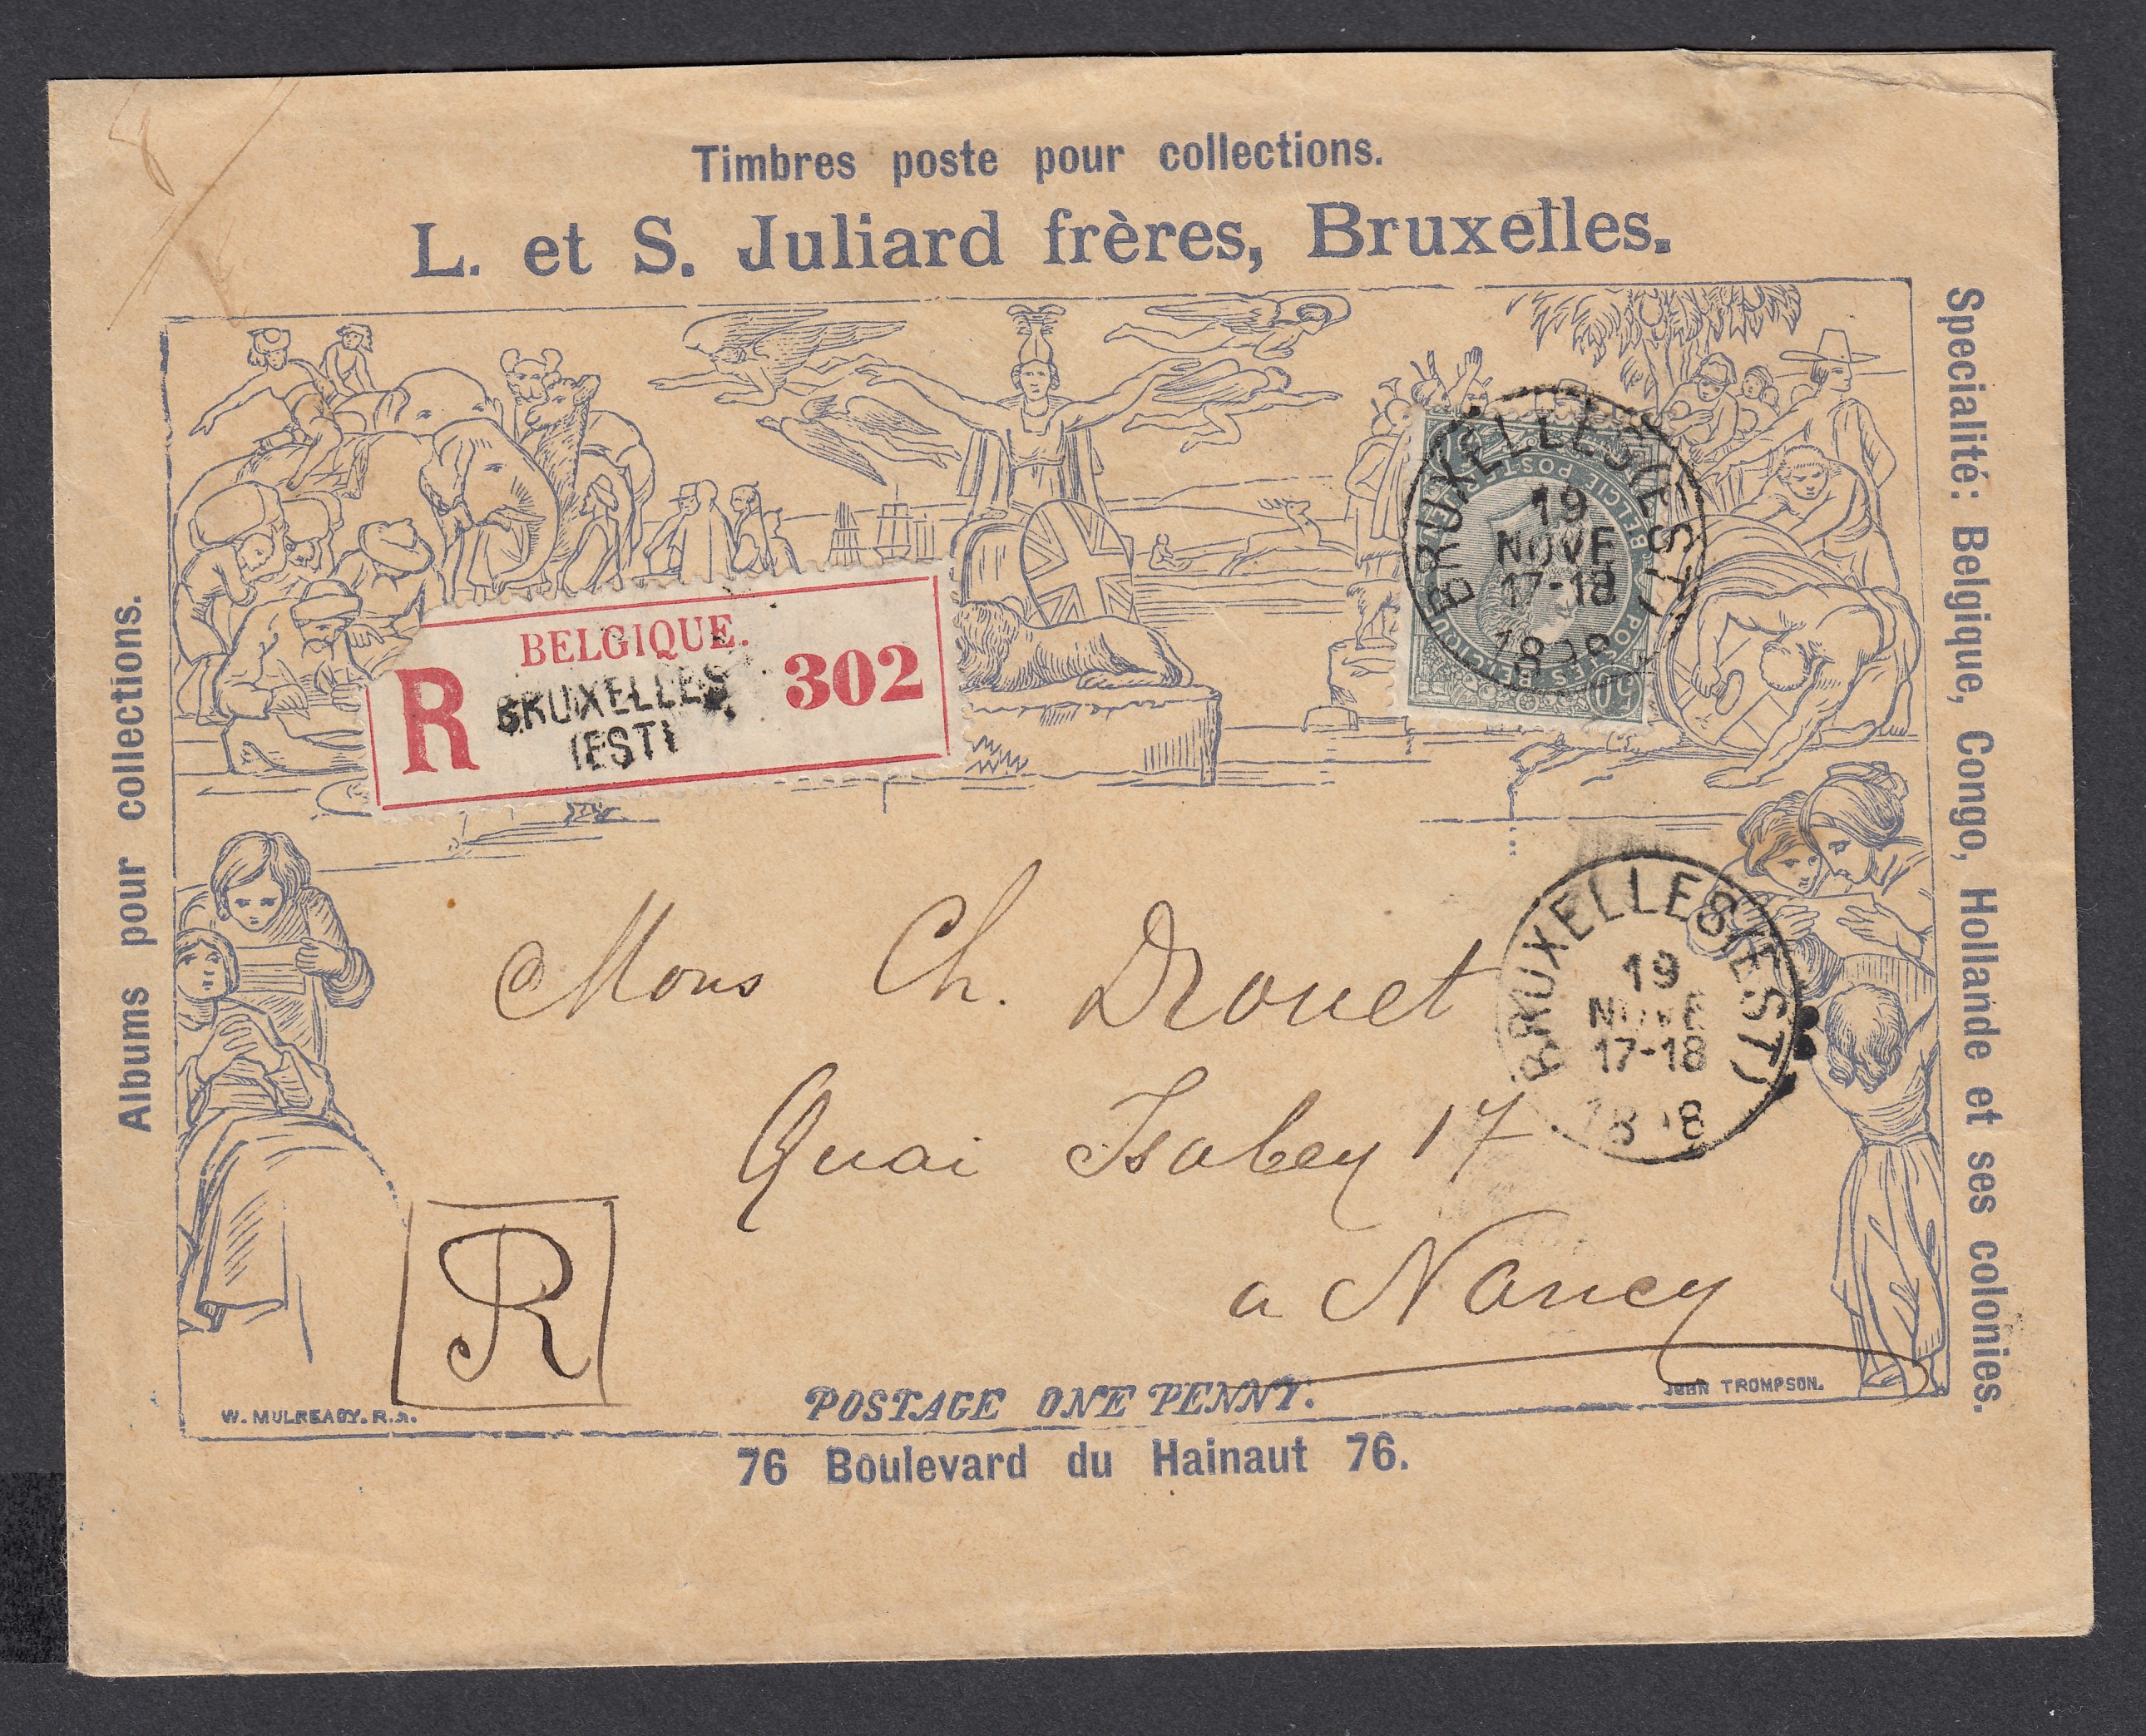 Timbres poste pour collections.
L. et S. Juliard frères, Bruxelles.
Albums pour collections.
Specialité: Belgique, Congo, Hollande et ses colonies.
BELGIQUE.
R
BRUXELLES
(EST)
302
BRUXELLES (EST)
19
NOVE
17-18
POSTES BELGIQUE
BELGIE POSTERIJEN
50
Mons Ch. Drouet
BRUXELLES (EST)
19
NOVE
17-18
Quai Isabey 17
a Nancy
R
W. MULREADY. R.A.
POSTAGE ONE PENNY.
JOHN TROMPSON.
76 Boulevard du Hainaut 76.